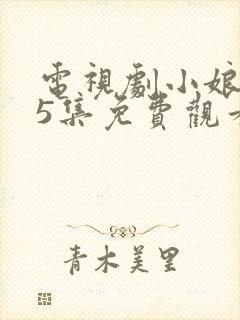 電視劇小娘
5集免費觀
青木美里